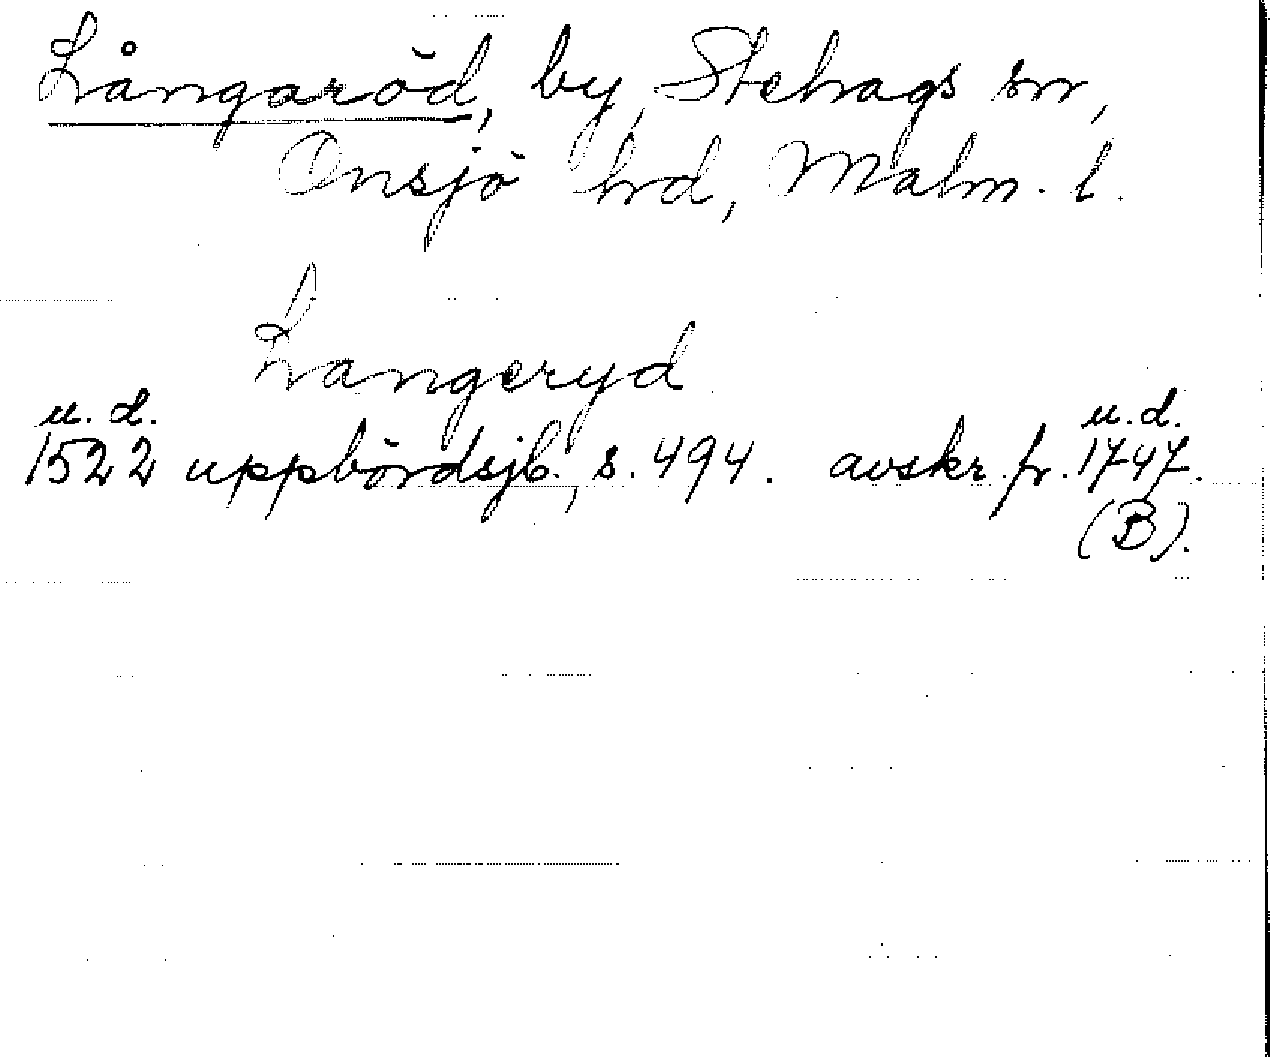 Långaröd, by, Stehags sn,
Onsjö hrd, Malm. l.
Langeryd
u. d. u. d.
1522 uppbördsjb., s. 494. avskr. fr. 1747.
(B).